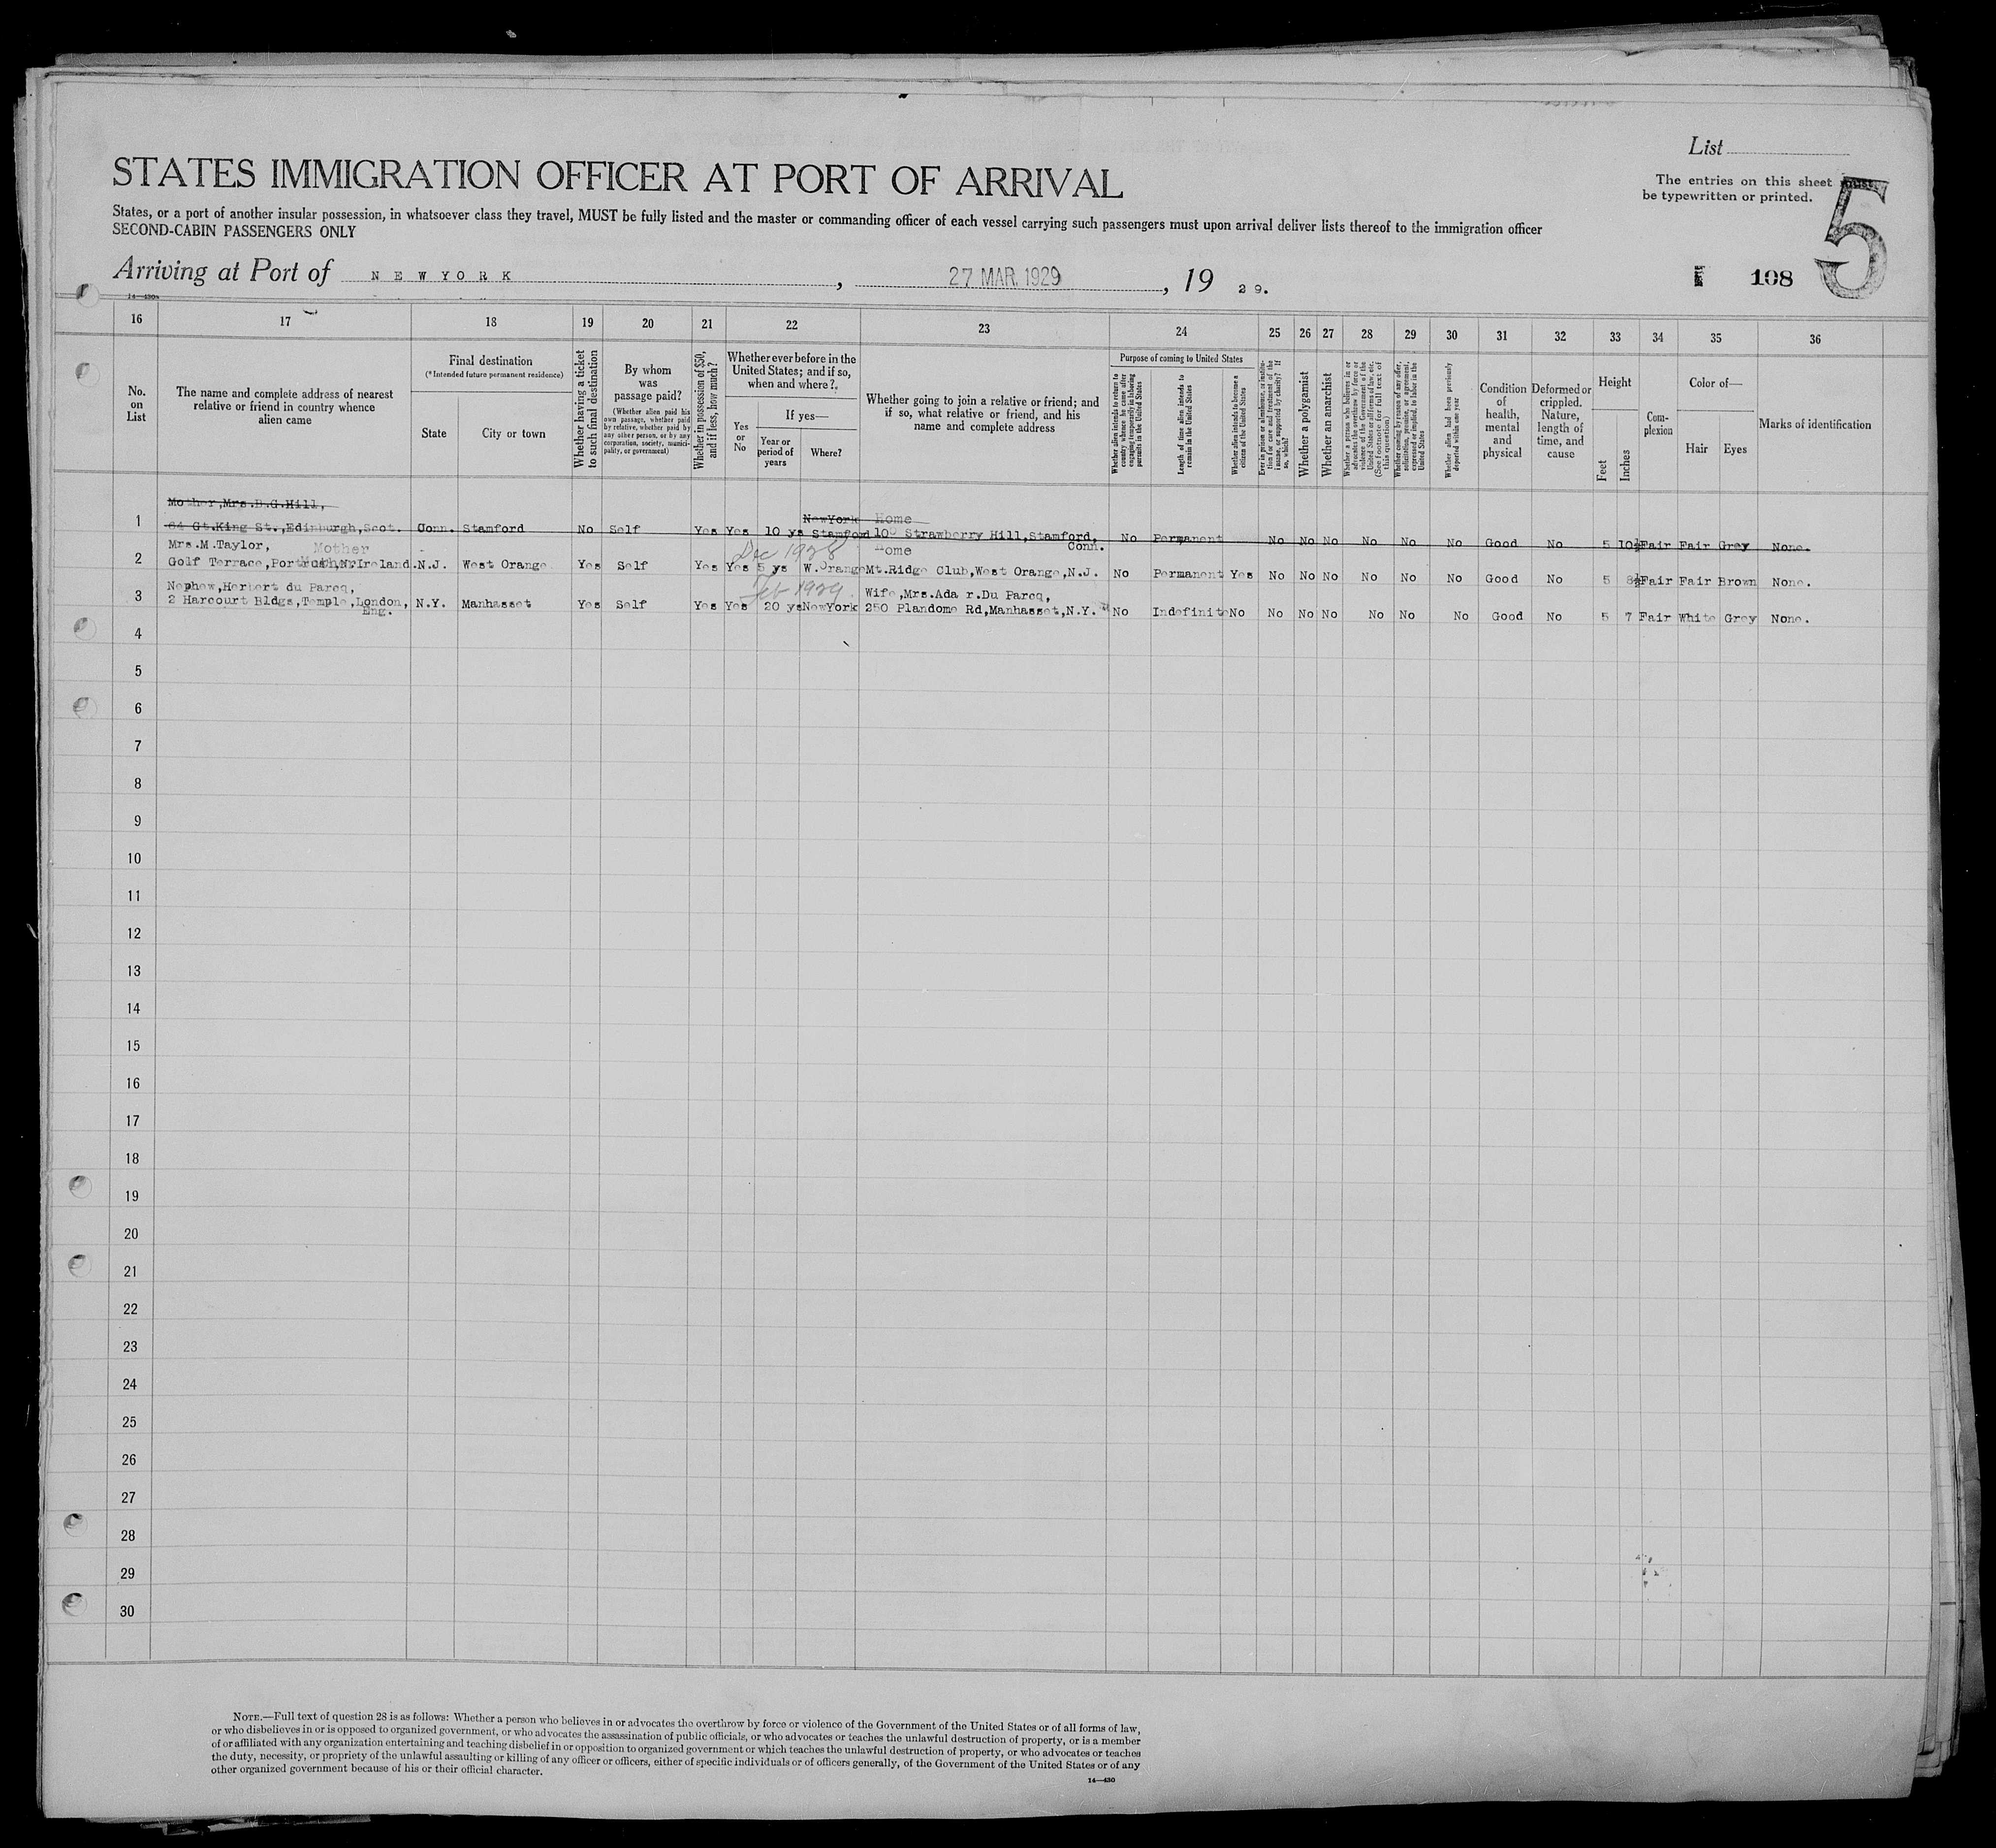 List
The entries on this sheet must
be typewritten or printed.
5
STATES IMMIGRATION OFFICER AT PORT OF ARRIVAL
States, or a port of another insular possession, in whatsoever class they travel, MUST be fully listed and the master or commanding officer of each vessel carrying such passengers must upon arrival deliver lists thereof to the immigration officer
SECOND-CABIN PASSENGERS ONLY
Arriving at Port of NEW YORK, 27 MAR. 1929, 19 29.
108
14—430
16 17 18 19 20 21 22 23 24 25 26 27 28 29 30 31 32 33 34 35 36
No. on List
The name and complete address of nearest relative or friend in country whence alien came
Final destination
(*Intended future permanent residence)
State
City or town
Whether having a ticket to such final destination
By whom was passage paid?
(Whether alien paid his own passage, whether paid by relative, whether paid by any other person, or by any corporation, society, municipality, or government)
Whether in possession of $50, and if less, how much?
Whether ever before in the United States; and if so, when and where?
Yes or No
If yes—
Year or period of years
Where?
Whether going to join a relative or friend; and if so, what relative or friend, and his name and complete address
Purpose of coming to United States
Whether alien intends to return to country whence he came after engaging temporarily in laboring pursuits in the United States
Length of time alien intends to remain in the United States
Whether alien intends to become a citizen of the United States
Ever in prison or almshouse, or institution for care and treatment of the insane, or supported by charity? If so, which?
Whether a polygamist
Whether an anarchist
Whether a person who believes in or advocates the overthrow by force or violence of the Government of the United States or all forms of law, etc. (See footnote for full text of this question)
Whether coming by reason of any offer, solicitation, promise, or agreement, expressed or implied, to labor in the United States
Whether alien had been previously deported within one year
Condition of health, mental and physical
Deformed or crippled. Nature, length of time, and cause
Height
Feet
Inches
Complexion
Color of—
Hair
Eyes
Marks of identification
Mother, Mrs.B.G.Hill, NewYork Home
1 64 Gt.King St.,Edinburgh,Scot. Conn. Stamford No Self Yes Yes 10 ys Stamford 100 Strawberry Hill,Stamford, Conn. No Permanent No No No No No No Good No 5 10½ Fair Fair Grey None.
Mrs.M.Taylor, Mother Dec 1928 Home
2 Golf Terrace,Portrush,N.Ireland. N.J. West Orange Yes Self Yes Yes 5 ys W.Orange Mt.Ridge Club,West Orange,N.J. No Permanent Yes No No No No No No Good No 5 8½ Fair Fair Brown None.
Nephew,Herbert du Parcq, Feb 1929 Wife,Mrs.Ada r.Du Parcq,
3 2 Harcourt Bldgs,Temple,London, Eng. N.Y. Manhasset Yes Self Yes Yes 20 ys NewYork 250 Plandome Rd,Manhasset,N.Y. No Indefinite No No No No No No No Good No 5 7 Fair White Grey None.
4
5
6
7
8
9
10
11
12
13
14
15
16
17
18
19
20
21
22
23
24
25
26
27
28
29
30
NOTE.—Full text of question 28 is as follows: Whether a person who believes in or advocates the overthrow by force or violence of the Government of the United States or of all forms of law,
or who disbelieves in or is opposed to organized government, or who advocates the assassination of public officials, or who advocates or teaches the unlawful destruction of property, or is a member
of or affiliated with any organization entertaining and teaching disbelief in or opposition to organized government or which teaches the unlawful destruction of property, or who advocates or teaches
the duty, necessity, or propriety of the unlawful assaulting or killing of any officer or officers, either of specific individuals or of officers generally, of the Government of the United States or of any
other organized government because of his or their official character.
14—430